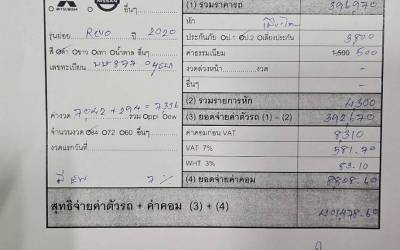 (1) รวมราคารถ 396,970
MITSUBISHI NISSAN
อื่นๆ หัก
รุ่นย่อย Revo ปี 2020 ประกันภัย ป.1 ป.2 เสี่ยงประกัน 3800
สี ดำ ขาว เทา น้ำตาล อื่นๆ ค่าธรรมเนียม 1,500 500
เลขทะเบียน งวดล่วงหน้า งวด -
อื่นๆ -
(2) รวมรายการหัก 4300
ค่างวด 7042 + 294 = 7336 รวม Opp Oew (3) ยอดจ่ายค่าตัวรถ (1) - (2) 392,670
จำนวนงวด 84 72 60 อื่นๆ ค่าคอมก่อน VAT 8310
งวดแรกวันที่ VAT 7% 581.70
WHT 3% 83.10
7% (4) ยอดจ่ายค่าคอม 8808.60
สุทธิจ่ายค่าตัวรถ + ค่าคอม (3) + (4) 401,478.60